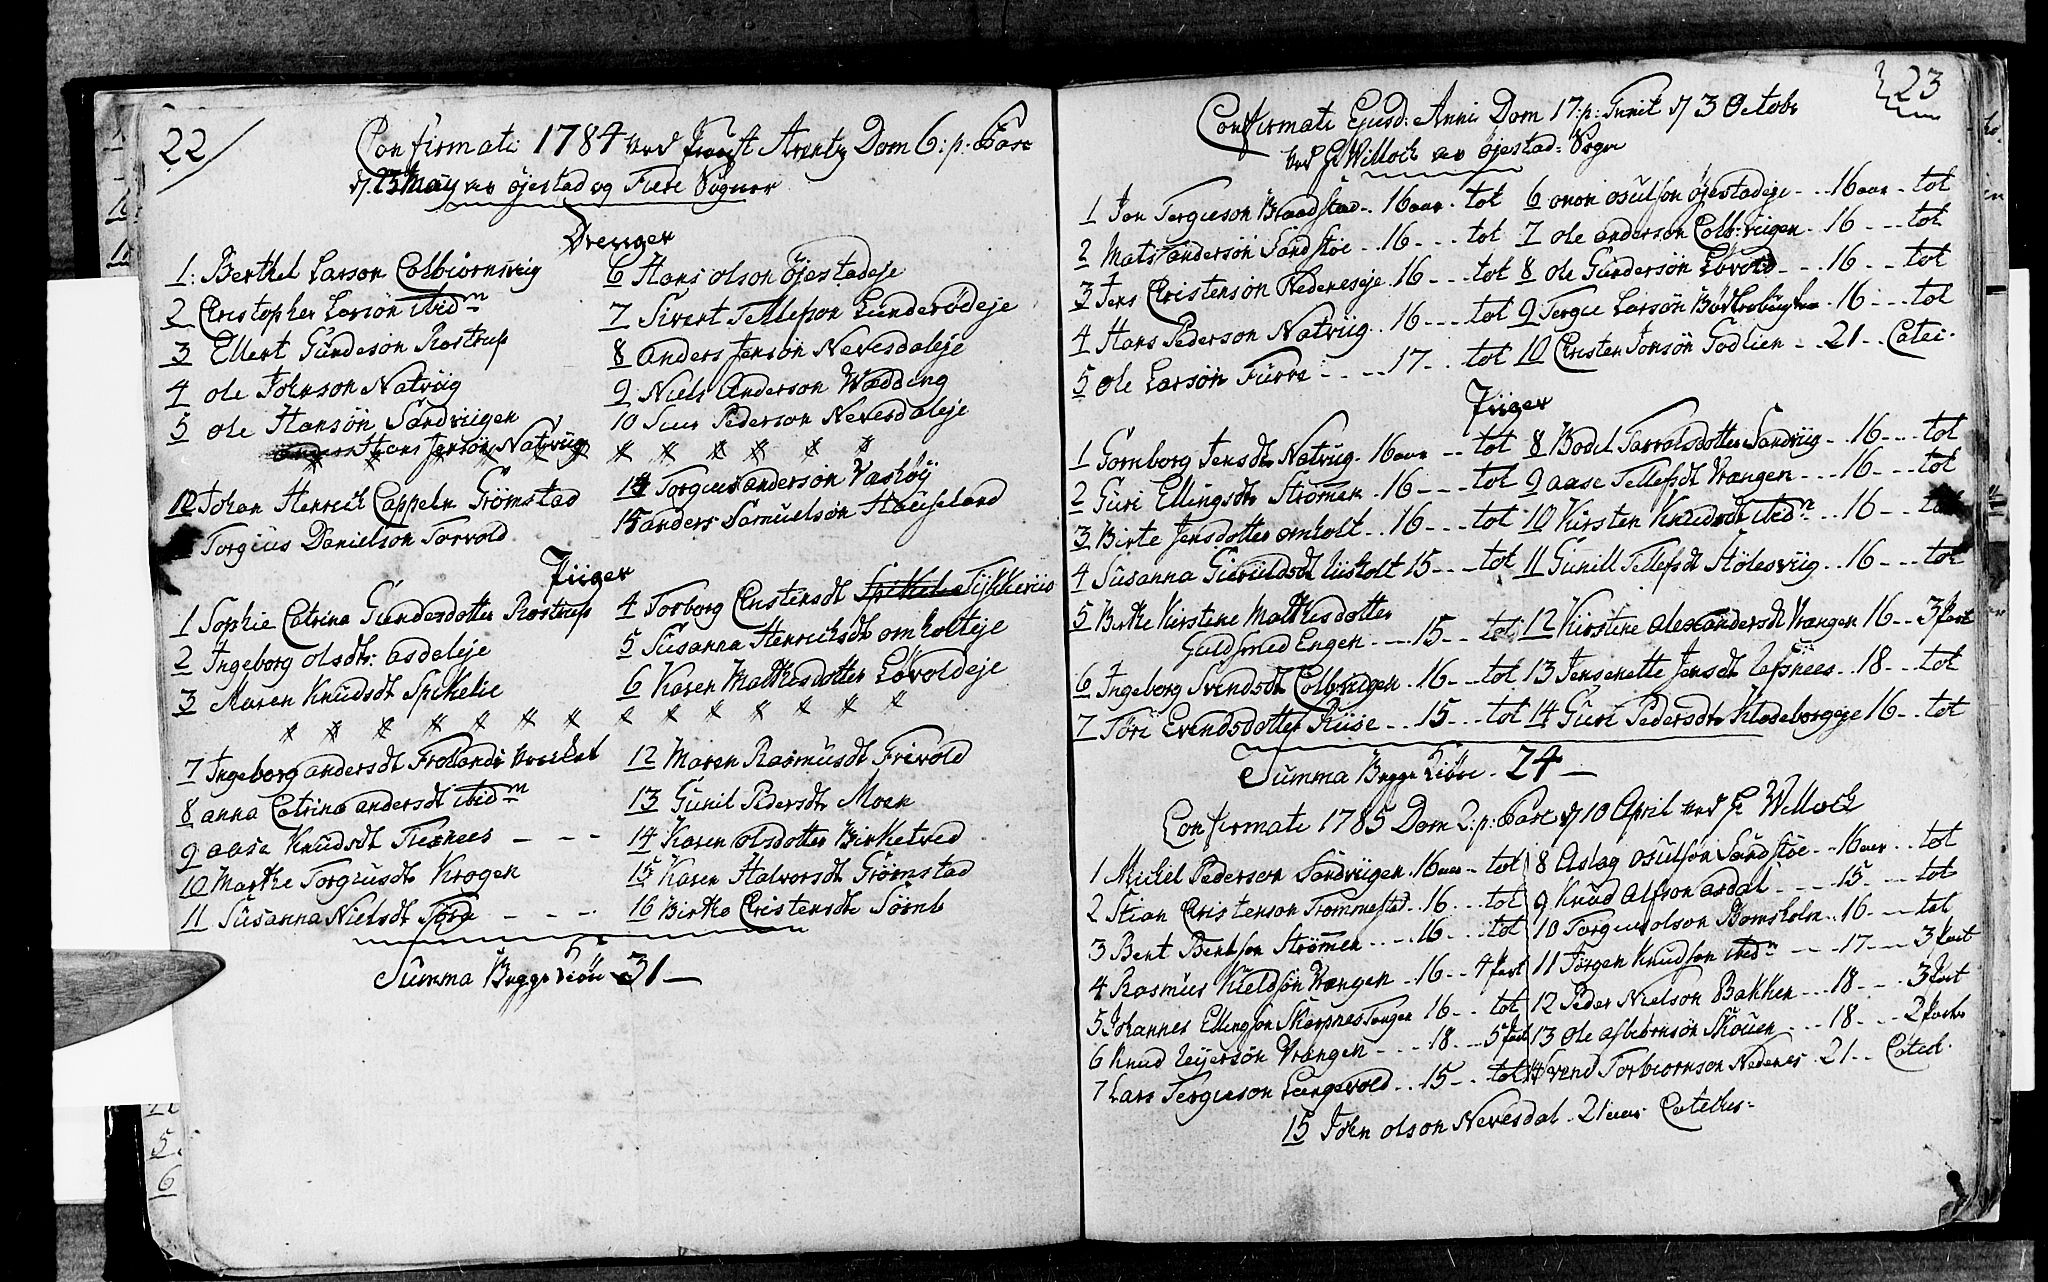 22/
Confirmati 1784 ved Arentz Dom 6: p. Pasc
d. 23 May av Øjestad og Fiere Sogner
Drenger
1: Berthel Larson Colbiornsvig
2 Christopher Larsön ibidm
3 Ellert Gundesön Rostrup
4 ole Johnson Natviig
5 ole Hansön Sandviigen
Hans Jensön Natviig
12 Johan Henrich Cappeln Grömstad
Torgius Danielson Torvold
6 Hans olson Öjestadeje
7 Sivert Tellefson Lunderödeje
8 anders Jensön Nevesdaleje
9 Niels Anderson Wædding
10 Suur Pederson Nevesdaleje
14 Torgius anderson Vasböj
15 anders Samuelsön Haugeland
Piiger
1 Sophie Catrina Gundersdotter Rostrup
2 Ingeborg olsdtr: asdaleje
3 Maren Knudsdt Spikelie
7 Ingeborg andersdt Frolands Værket
8 anna Catrina andersdt ibidm
9 aase Knudsdt Trernees - - -
10 Marthe Torgiusdtr Krogen
11 Susanna Nielsdt - - -
4 Torborg Cristensdt
5 Susanna Henrichsdt omholteje
6 Karen Mathisdotter Lövoldeje
12 Maren Rasmusdt Frivold
13 Gunil Pedersdtr Moen
14 Karen olsdotter Birketved
15 Karen Halvorsdt Grömstad
16 Birthe Cristensdt Sörnb
Summa Begge Kiön 31 -
23
Confirmati Ejusd: Anni Dom 17: p: Trinit d 3 Octobr
ved G Willoch av Øjestad: Sogn
1 Jon Tergieson Braadstad - 16 aar - tot
2 Mats anderson Sandstöe - 16 - - - tot
3 Jens Christenson Nedeneseje 16 - - - tot
4 Hans Pederson Natviig - 16 - - - tot
5 ole Larsön Furre - - - 17 - - tot
6 onon osulson Øjestadeje - - 16 aar - tot
7 ole anderson Colb:viigen - 16 - - - tot
8 ole Gundersön Lövold - - - 16 - - tot
9 Tergie Larsön 16 - - - tot
10 Cristen Jonsön Godlien - - 21 - - Catec.
Piiger
1 Gornborg Jensdt. Natviig - 16 aar - - tot
2 Guri Ellingsdt Strömen - 16 - - - tot
3 Birte Jensdotter omholt - - 16 - - - tot
4 Susanna Gierulsdt Liisholt 15 - - - tot
5 Birthe Kirstine Mathisdotter
Guldsmed Engen - - - 15 - - tot
6 Ingeborg Svendsdt Colbviigen - 16 - - tot
7 Töre Evendsdotter Riise - - 15 - - tot
8 Bodel Tarroldsdotter Sandviig - 16 - - - tot
9 aase Tellefsdt Vrængen - - 16 - - - tot
10 Kirsten Knudsdt ibidm - - 16 - - tot
11 Gunill Tellefsdt Hölesviig - 16 - - - tot
12 Kirstine alexandersdt Vrængen 16 - 3 Part
13 Jensenette Jensdt Refsnees - 18 - - tot
14 Guri Pedersdtr Klodeborgeje 16 - - tot
Summa Begge Kiön - 24 -
Confirmati 1785 Dom 2: p: Pasc d 10 April ved G Willoch
1 Michel Pederson Sandviigen 16 aar - tot
2 Stian Cristenson Trommestad - 16 - - - tot
3 Bent Bentson Strömen - - - 16 - - - tot
4 Rasmus Kieldsön Vrængen - 16 - - 4 Part
5 Johannes Ellingson Skarpnes Tangen 16 - - tot
6 Knud Reijersön Vrængen - - - 18 - - 5 Part
7 Lars Tergieson Langevold - - 15 - - tot
8 Aslag osulson Sandstöe - - 16 aar - - tot
9 Knud Alfson asdal - - - - 15 - - - tot
10 Torgius olson Bomsholm - - 16 - - - tot
11 Jörgen Knudson ibidm - - - 17 - - 3 Part
12 Peder Nielson Bakken - - - 18 - - - 3 Part
13 Ole asbiörnsön Skouen - - - 18 - - - 2 Parter
14 Svend Torbiornson Nedenes - 21 - - Catech.
15 John olson Nevesdal - 21 aar Catehes -